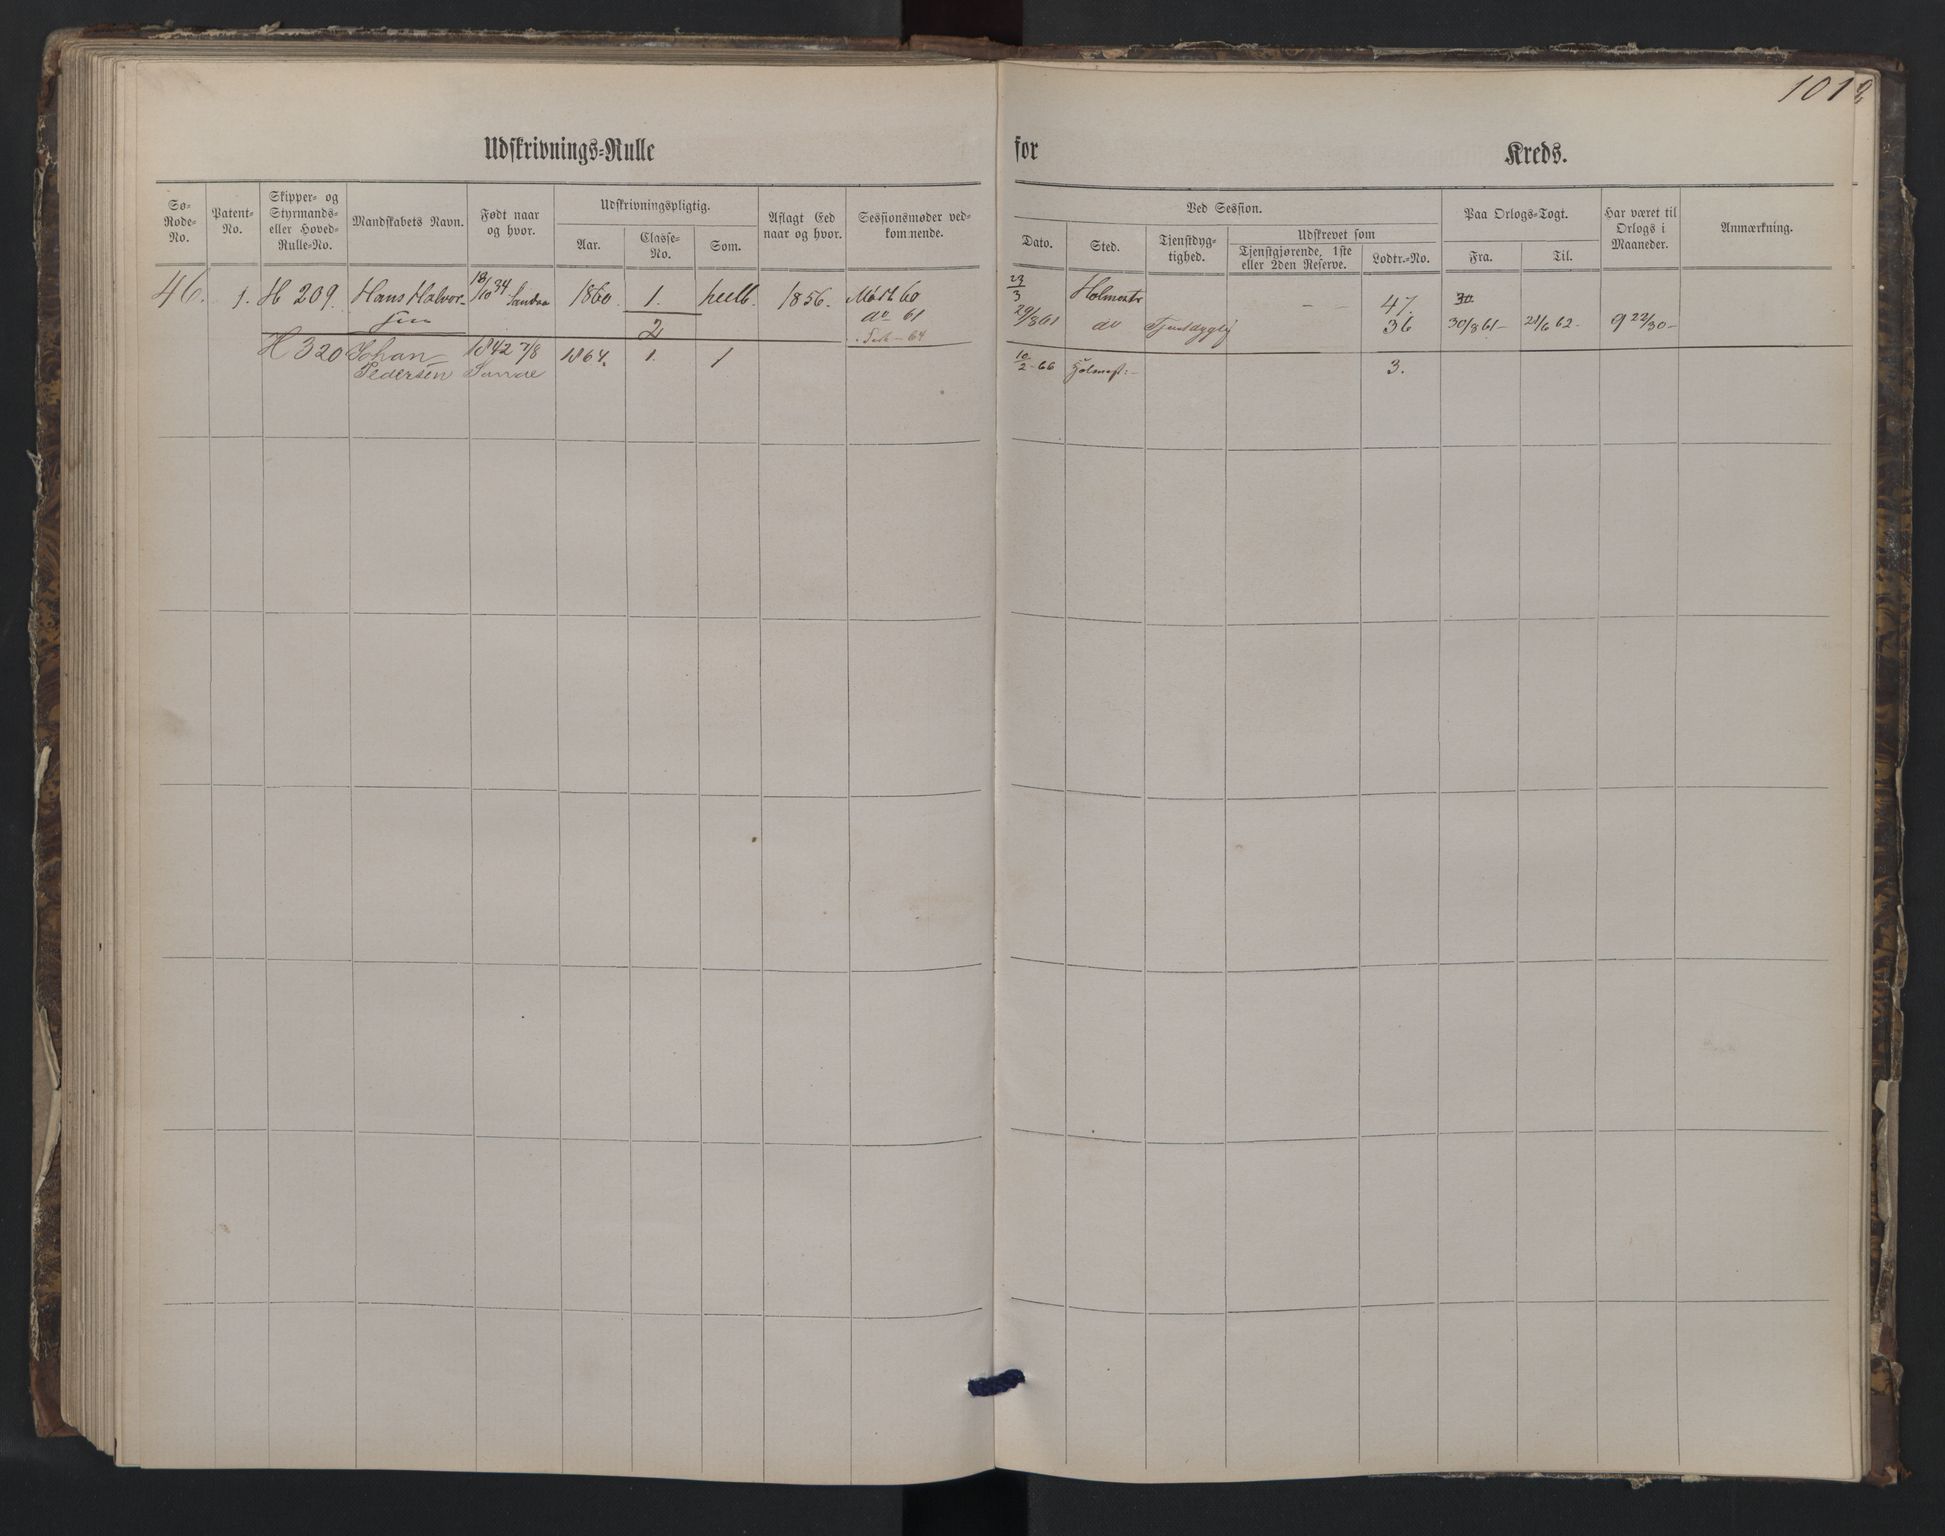 101
Udskrivnings-Rulle for Kreds.
Sø-Rode-No.
Patent-No.
Skipper- og Styrmands- eller Hoved-Rulle-No.
Mandskabets Navn.
Født naar og hvor.
Udskrivningspligtig.
Aar.
Classe-No.
Som.
Aflagt Eed naar og hvor.
Sessionsmøder vedkommende.
Ved Session.
Dato.
Sted.
Tjenstdygtighed.
Udskrevet som
Tjenstgjørende, 1ste eller 2den Reserve.
Lodtr.-No.
Paa Orlogs-Togt.
Fra.
Til.
Har været til Orlogs i Maaneder.
Anmærkning.
46. 1. H 209. Hans Halvor- 18/10 34 1860. 1. 1856. Mødt 60 23/3 47.
sen 2 do 61 29/8 61 do Tjenstdygtig 36 30/8 61- 21/6 62. 9 22/30-
64
H 320 Johan 1842 7/8 1864. 1. 1 10/2-66 Holmest:- 3.
Pedersen Sande